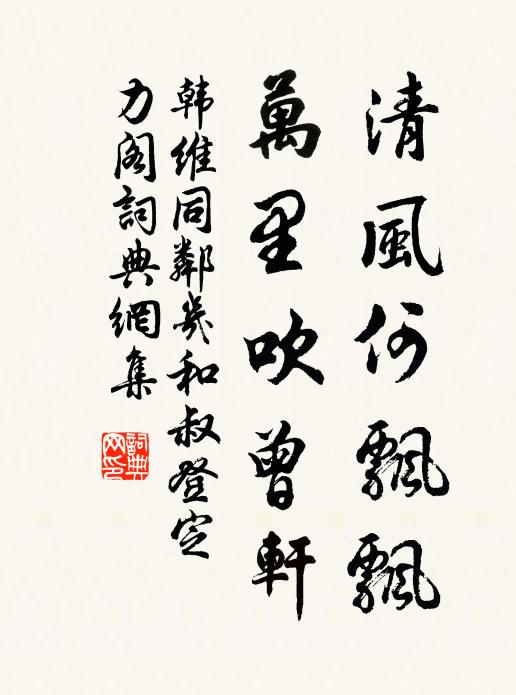 清風何飄飄
萬里吹曾軒
韩維同鄰幾和叔登定
力阁詞典網集
詞典网印